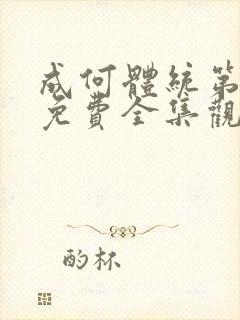 成何體統第
免費全集觀
酌杯